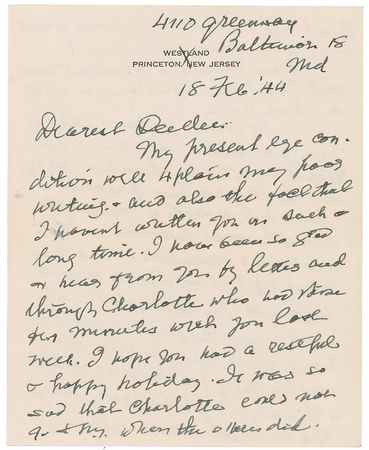 4110 Greenway
Baltimore 18
Md
WESTLAND
PRINCETON, NEW JERSEY
18 Feb '44
Dearest
My present eye con-
dition will xplain my poor
writing - and also the fact that
I havent written you in such a
long time. I have been so glad
to hear from you by letter and
through Charlotte who had those
few minutes with you last
week. I hope you had a restful
& happy holiday. It was so
sad that Charlotte could not
when the others did.